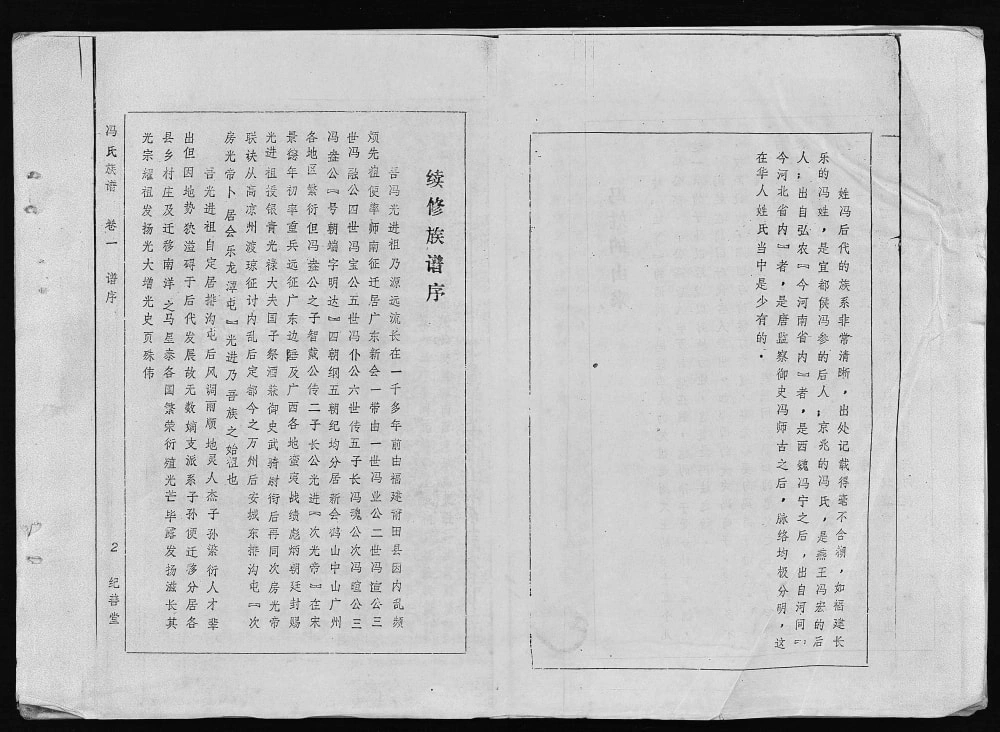 姓冯后代的族系非常清晰，出处记载得毫不含糊，如福建长
乐的冯姓，是宜都候冯参的后人；京兆的冯氏，是燕王冯宏的后
人；出自弘农『今河南省内』者，是西魏冯宁之后，出自河间『
今河北省内』者，是唐监察御史冯师古之后，脉络均极分明，这
在华人姓氏当中是少有的．
续修族谱序
吾冯光进祖乃源远流长在一千多年前由福建莆田县因内乱频
烦先祖便率师南征迁居广东新会一带由一世冯业公二世冯宣公三
世冯融公四世冯宝公五世冯仆公六世传五子长冯魂公次冯暄公三
冯盎公『号朝端字明达』四朝纲五朝纪均分居新会鹤山中山广州
各地区繁衍但冯盎公之子智戴公传二子长公光进『次光帝』在宋
景德年初率重兵远征广东边陲及广西各地蛮夷战绩彪炳朝廷封赐
光进祖授银青光禄大夫国子祭酒兼御史武骑尉衔后再同次房光帝
联诀从高凉州渡琼征讨内乱后定都今之万州后安城东排沟屯『次
房光帝卜居会乐龙潭屯』光进乃吾族之始祖也
吾光进祖自定居排沟屯后风调雨顺地灵人杰子孙繁衍人才辈
出但因地势狭溢碍于后代发展故无数嫡支派系子孙便迁移分居各
县乡村庄及迁移南洋之马星泰各国繁荣衍殖光芒毕露发扬滋长其
光宗耀祖发扬光大增光史页殊伟
冯氏族谱 卷一 谱序 2 纪善堂